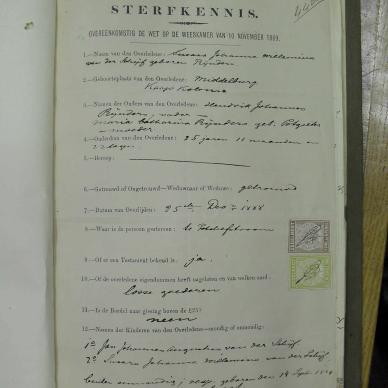 STERFKENNIS.
OVEREENKOMSTIG DE WET OP DE WEESKAMER VAN 10 NOVEMBER 1869.
1.—Naam van den Overledene: Susara Johanna Willemina
van der Schijf geboren Reynders
2.—Geboorteplaats van den Overledene: Middelburg
Kaap Kolonie
3.—Namen der Ouders van den Overledene: Hendrik Johannes
Reynders, vader –
Maria Catharina Reynders geb. Potgieter
– moeder
4.—Ouderdom van den Overledene: 25 jaren 11 maanden en
22 dagen
5.—Beroep:
6.—Getrouwd of Ongetrouwd—Weduwnaar of Weduwe: getrouwd
7.—Datum van Overlijden: 25ste Decr 1888
8.—Waar is de persoon gestorven: te Potchefstroom
9.—Of er een Testament bekend is: ja.
10.—Of de overledene eigendommen heeft nagelaten en van welken aard:
losse goederen
11.—Is de Boedel naar gissing boven de £25?
neen
12.—Namen der Kinderen van den Overledene—mondig of onmondig:
1º Jan Johannes Augustinus van der Schijf
2º Susara Johanna Willemina van der Schijf
beiden onmondig, geboren den 14 Sept.